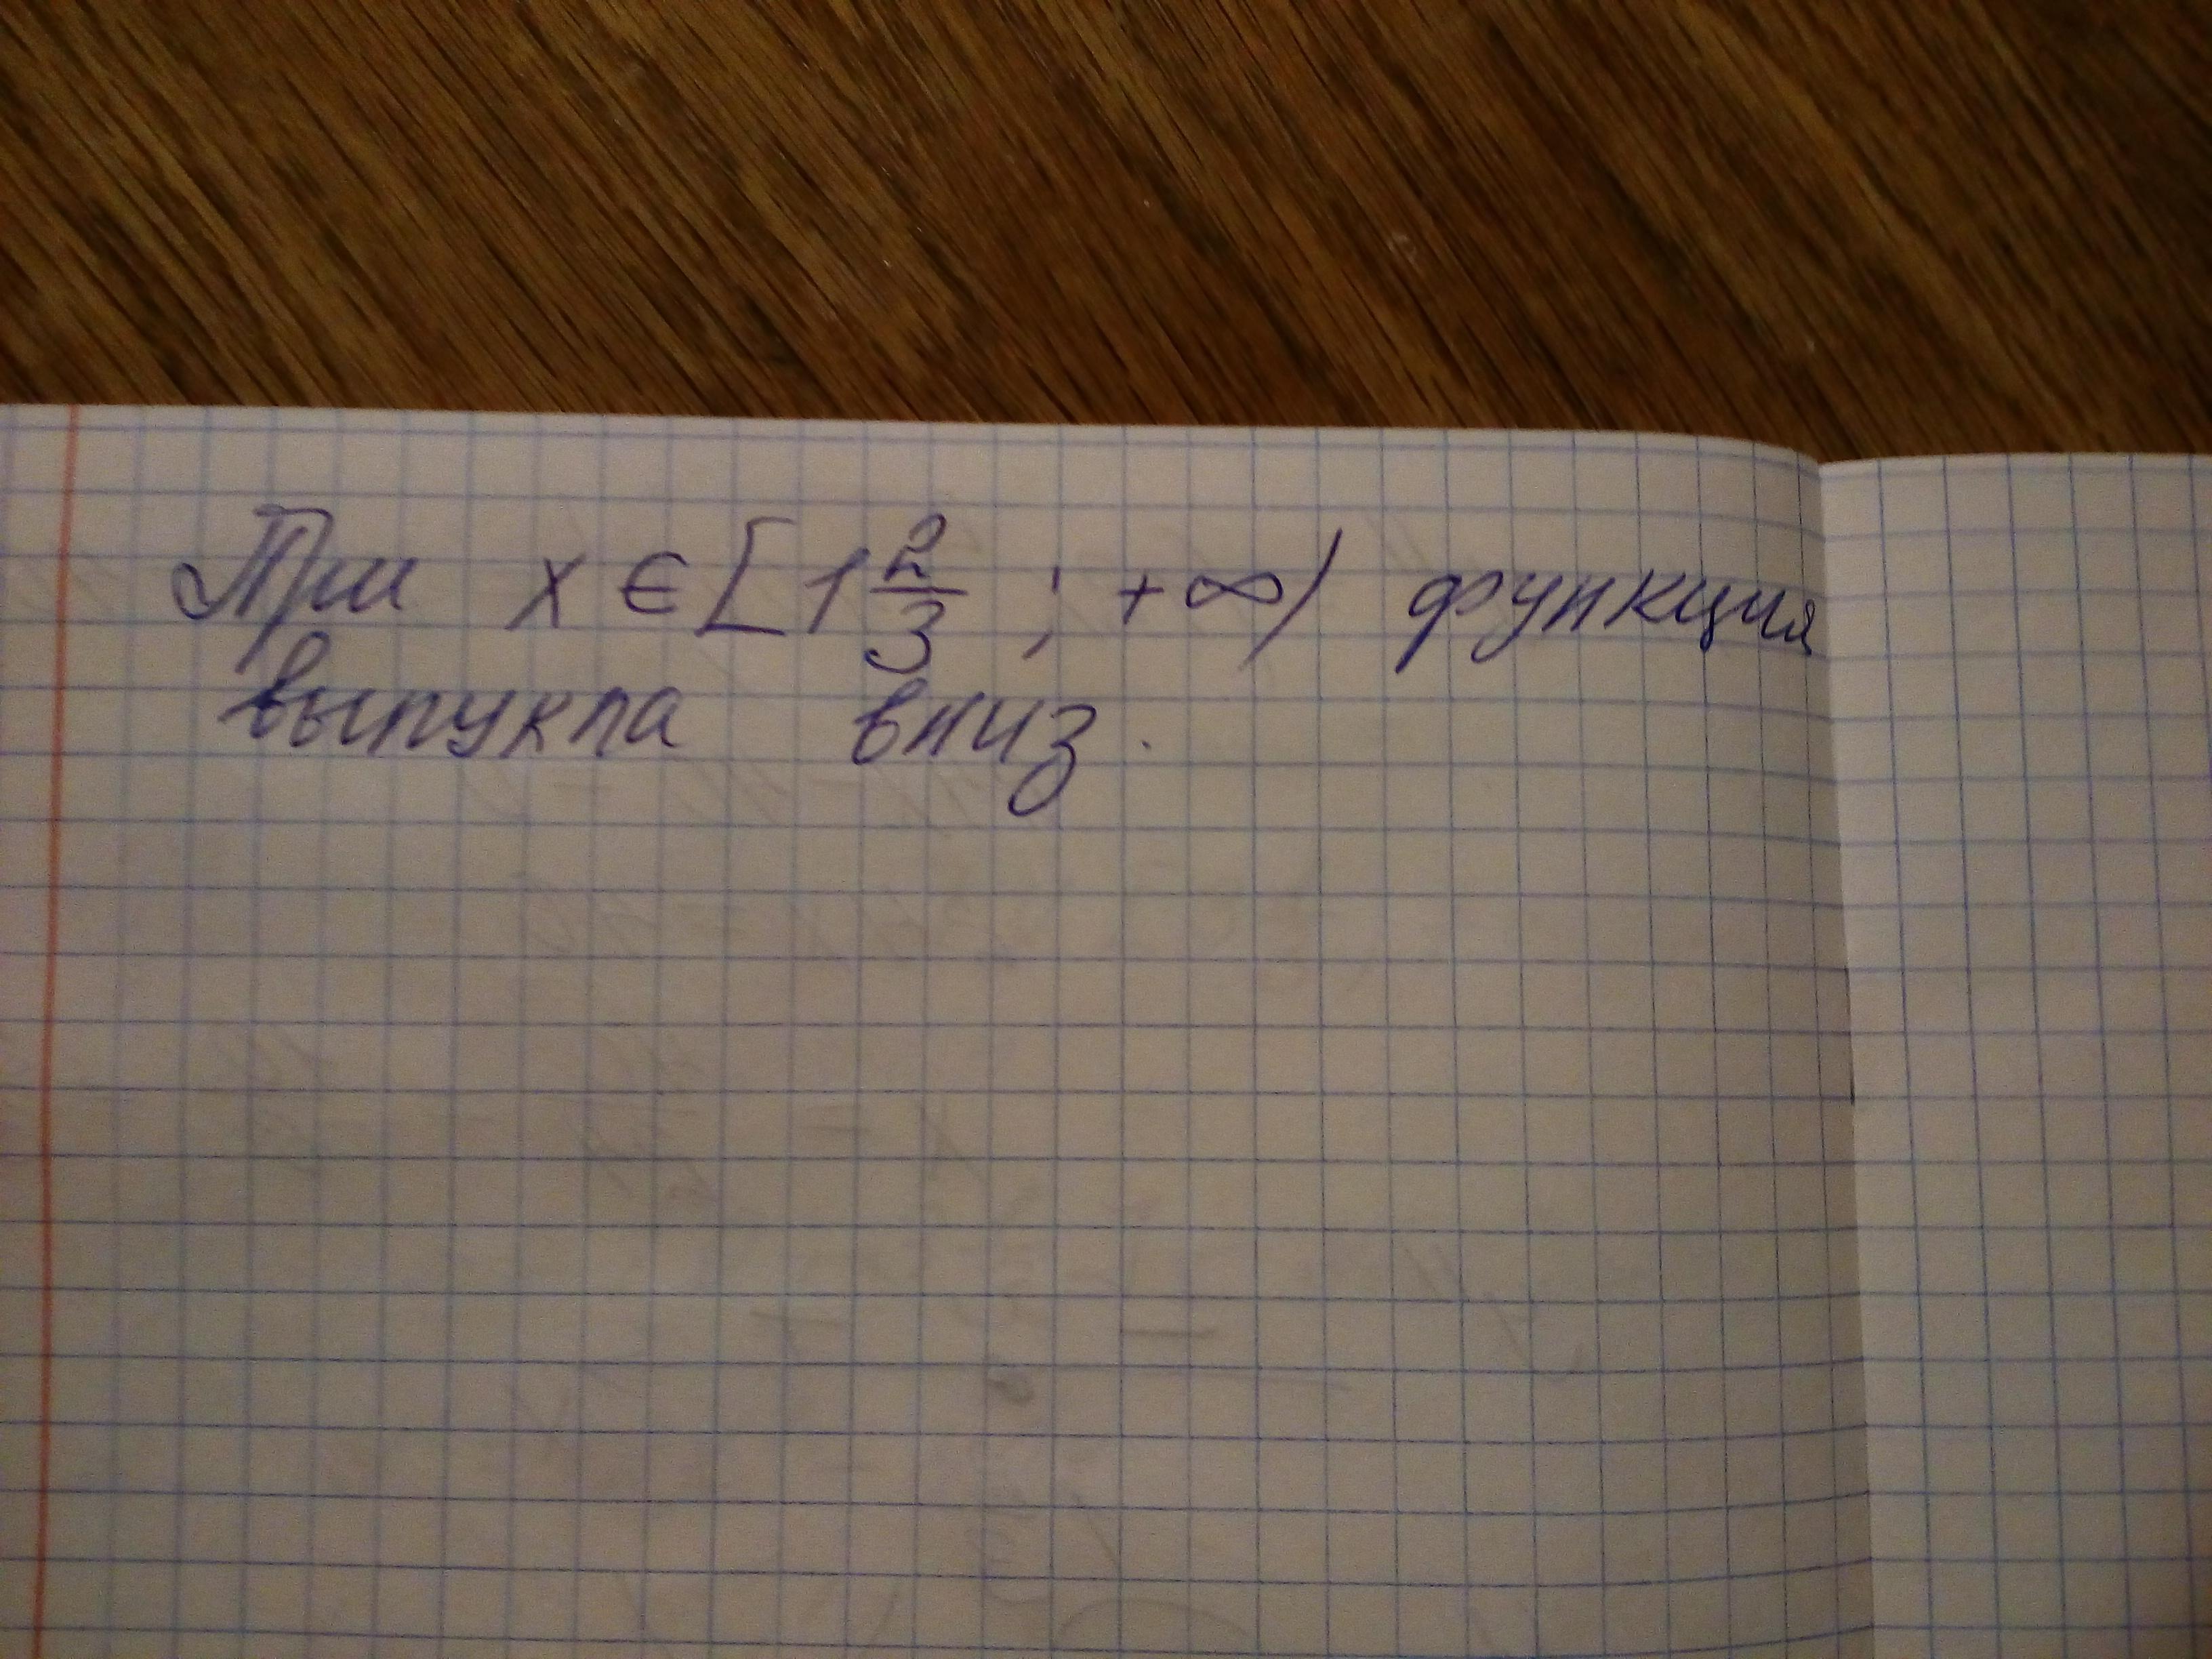 При x ∈ [1 2/3 ; +∞) функция
выпукла вниз.